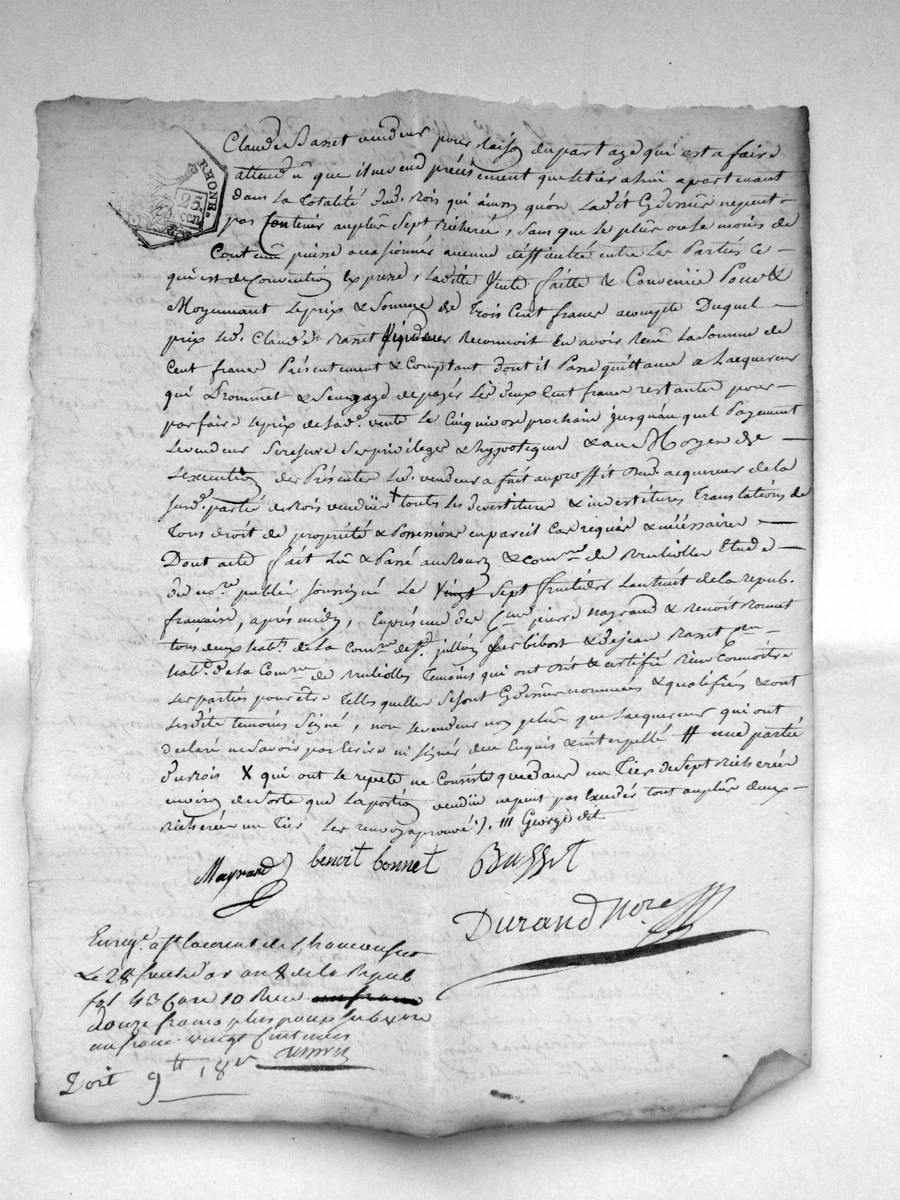 RHONE.
25.
cen
Claude Basset vendeur pour raison du partage qui est a faire
attendu que il ne vend précisement que le tier a lui apartenant
dans la Totalité dud. Bois qui ainsy qu'on la dit Cydessus ne peut
pas Contenir au plus Sept Bicherée, Sans que le plus ou le moins de
Contenue puisse occasionner aucune difficultée entre Les Parties Ce
qui est de Convention Expresse, Ladite Vente faitte & Convenüe Pour &
Moyennant Le prix & Somme de Trois Cent francs acompte Duquel
prix led. Claude Basset vendeur Reconnoit En avoir Reçu La Somme de
Cent francs Présentement & Comptant dont il Passe quittance a L'acquereur
qui Promet & S'engage de payer Les deux Cent francs restants pour
parfaire le prix de lad. vente Le Cinq nivose prochain jusqu'au quel Payement
Le vendeur Se reserve Ses privileges & hypoteques & au Moyen de
L'execution des Présentes Led. vendeur a fait au proffit dud. acquereur de la
susd. partie de Bois vendüe + toutes les devestitures & investitures Translations de
Tous droit de propriété & Possessions en pareil Cas requis & nécéssaires
Dont acte fait Lu & Passé au Bourg & com.ne de Brullioles Etude
du no.re publié soussigné Le Vingt Sept fructidor L'an huit de la repub.
française, après midy, En présence des C.ens pierre Mayrand & Benoit Bonnet
tous deux hab.ts de la Com.ne de S.t jullien sur bibost & de jean Basset
hab.t de la Com.ne de Brullioles Temoins qui ont dit & certifié Bien Connoitre
Les parties pour être Telles qu'elles Se sont Cydessus nommées & qualifiés & ont
Lesdits temoins Signé, non le vendeur non plus que L'acquereur qui ont
déclaré ne Savoir pas Ecrire ni Signer de ce Enquis & interpellé # une partie
du Bois X qui ont le repete ne Consiste que dans un Tier de Sept Bicherées
environ de Sorte que La portion vendüe ne peut pas Exceder tout au plus deux
Bicherées un Tier Les renvoy aprouvés). /// George dit
Mayrand benoit bonnet Basset
Durand No.re
Enreg. a S.t Laurent de Chamousset
Le 28 fructidor an 8 de la Repub
fol 43 Case 10 Reçu
douze francs plus pour subvention
un franc vingt centimes
Doit 9